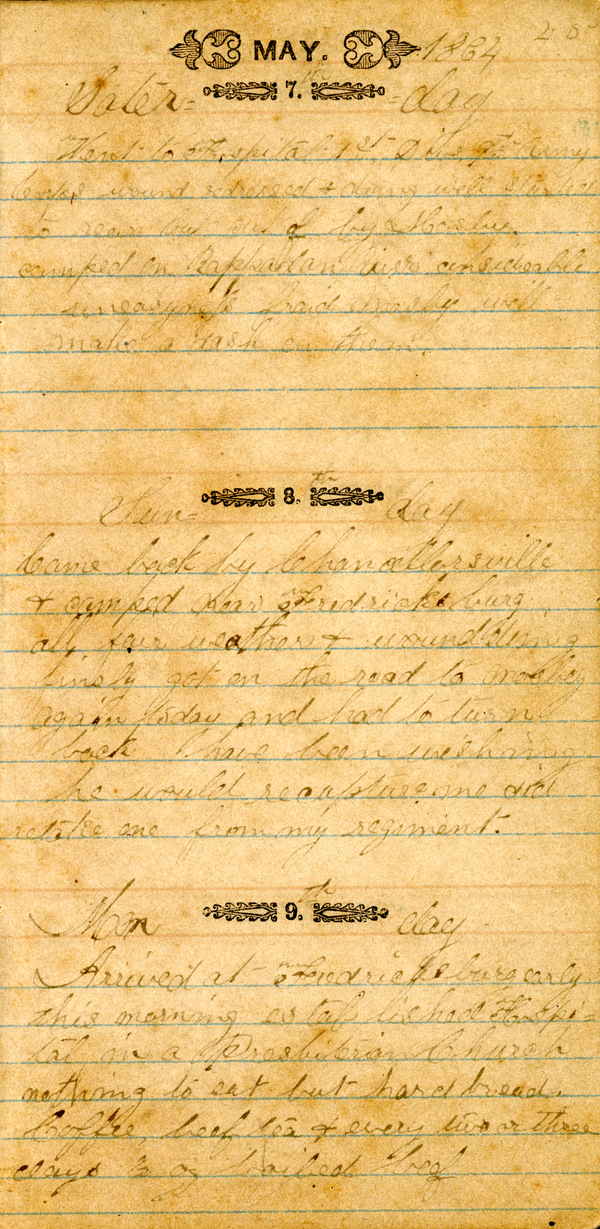 MAY. 1864
7.th
Sater= =day
Went to Hospital 1st Div army
wound redressed & doing well started
to rear but by Mosby.
camped on Rappahan river considerable
uneasyness fraid Mosby will
make a rash on them.
8.th
Sun= day
Came back by Chancellorsville
& camped near Fredricksburg
all fair weather & wound doing
finely got on the road to
again today and had to turn
back have been wishing
he would recapture me and
retake me from my regiment.
9.th
Mon day
Arrived at Fredricksburg early
this morning established Hospi=
tal in a Presbiterian Church
nothing to eat but hard bread,
Coffee, beef tea & every two or three
days oz boiled beef